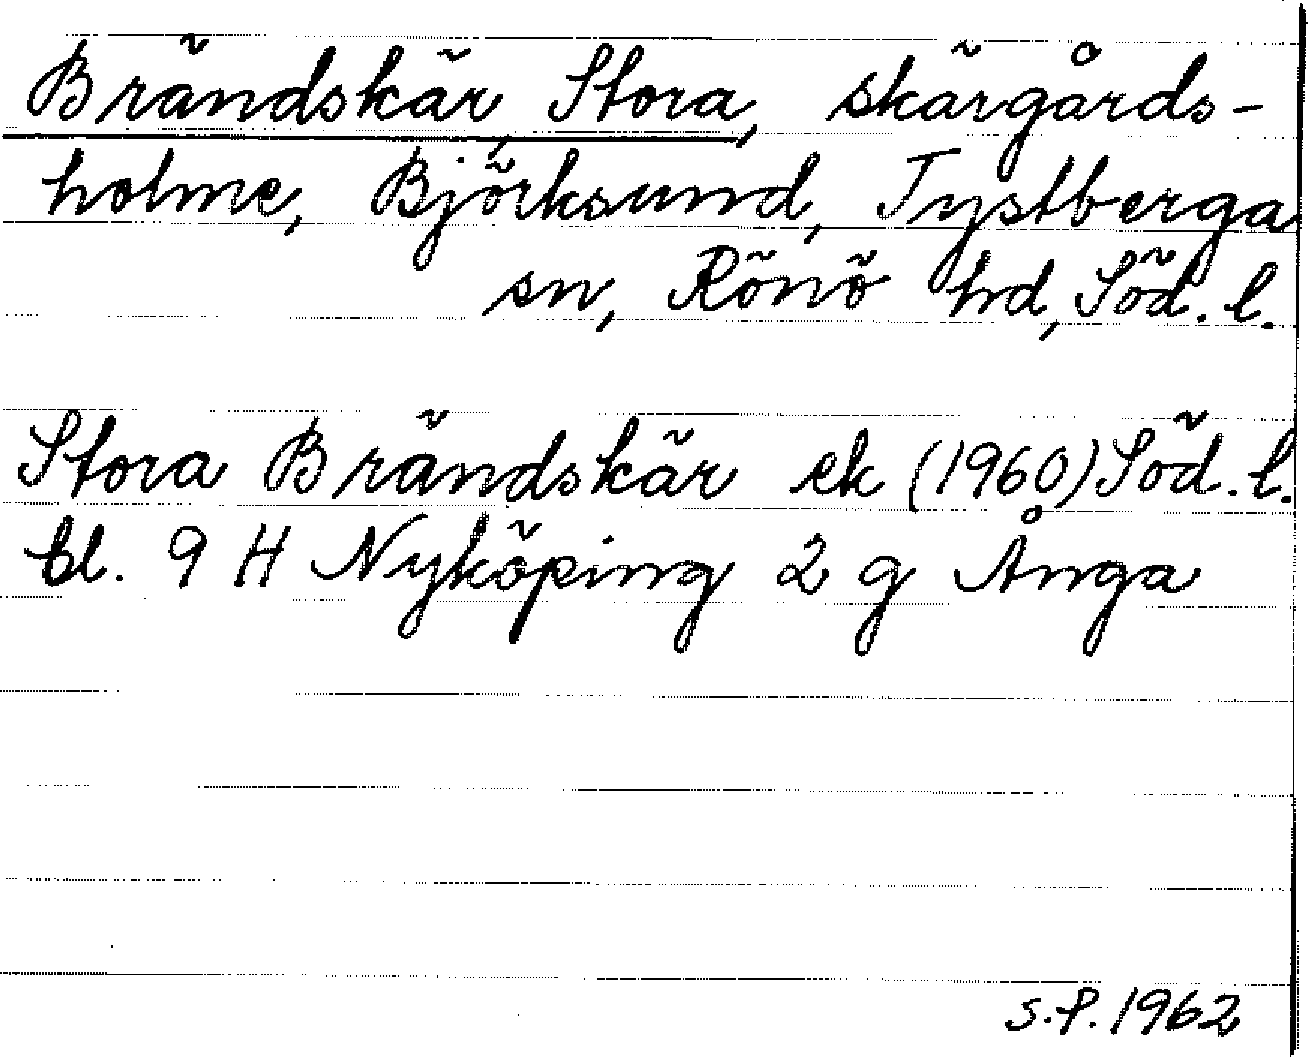 Brändskär, Stora, skärgårds-
holme, Björksund, Tystberga
sn, Rönö hd, Söd. l.
Stora Brändskär ek (1960) Söd. l.
bl. 9 H Nyköping 2 g Ånga
S.P. 1962